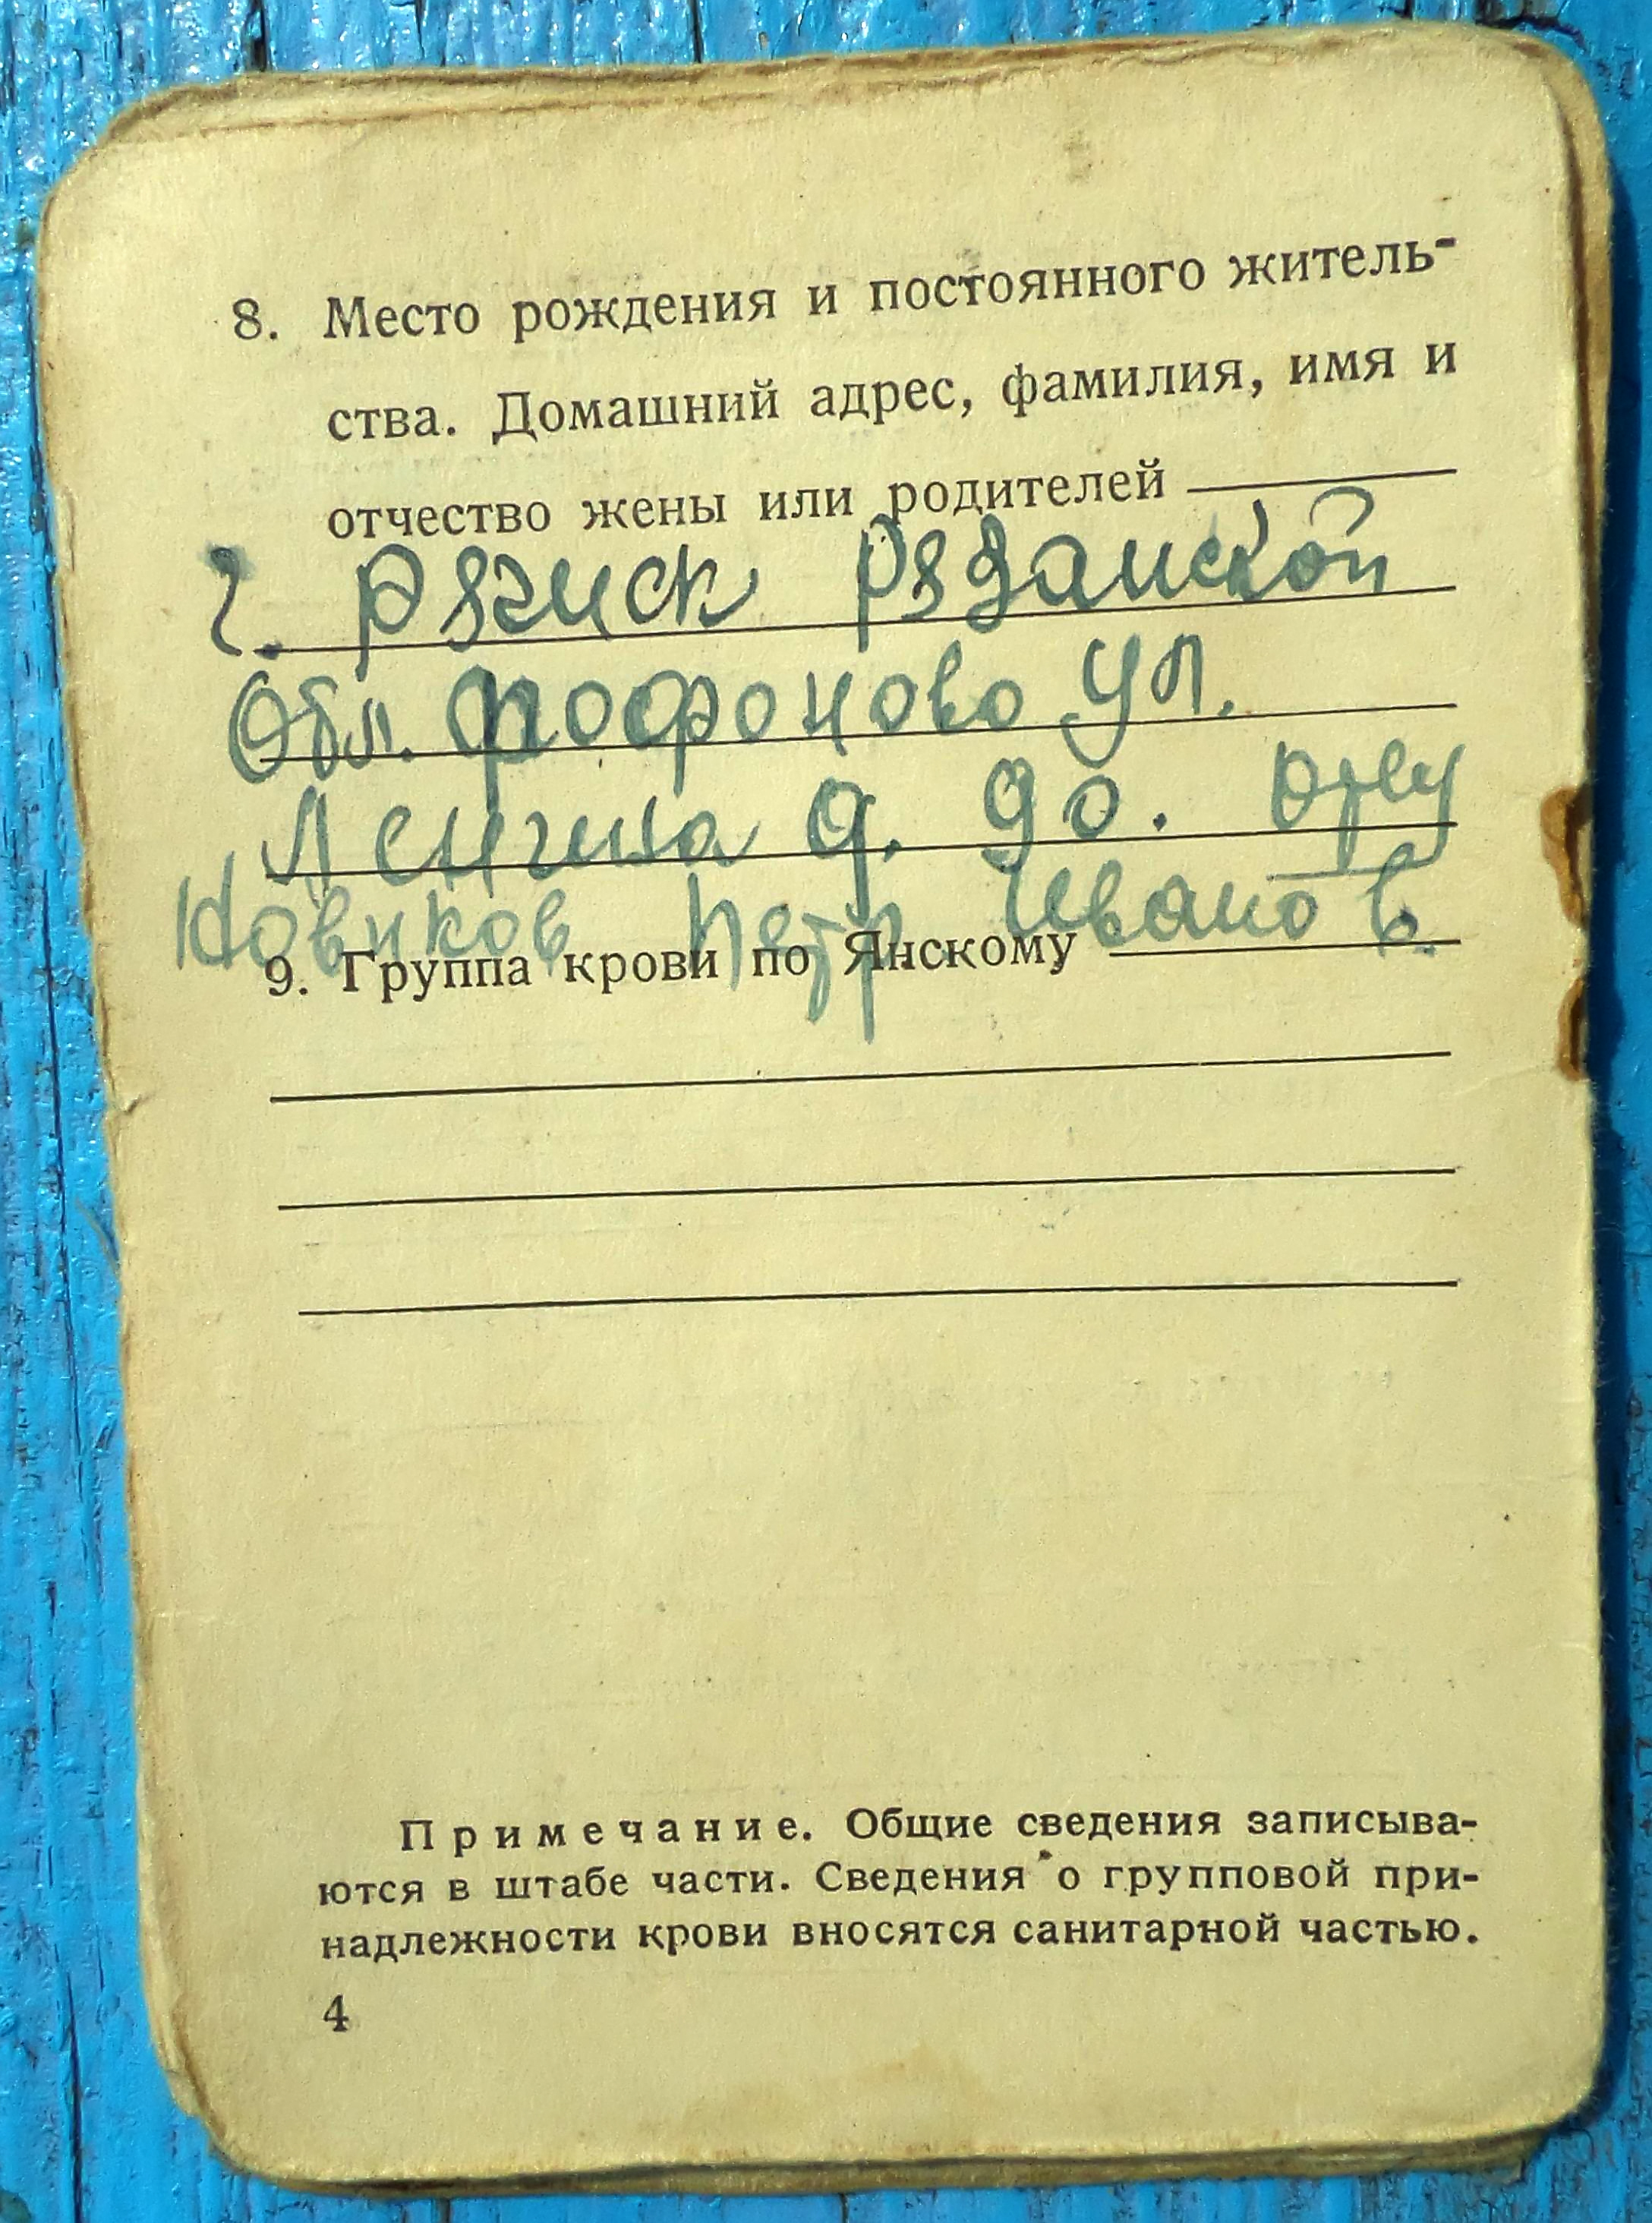 8. Место рождения и постоянного житель-
ства. Домашний адрес, фамилия, имя и
отчество жены или родителей
г. Ряжск Рязанской
Обл. Фофоново ул.
Ленина д. 90. Отец
Новиков Петр Иванов.
9. Группа крови по Янскому
Примечание. Общие сведения записыва-
ются в штабе части. Сведения о групповой при-
надлежности крови вносятся санитарной частью.
4